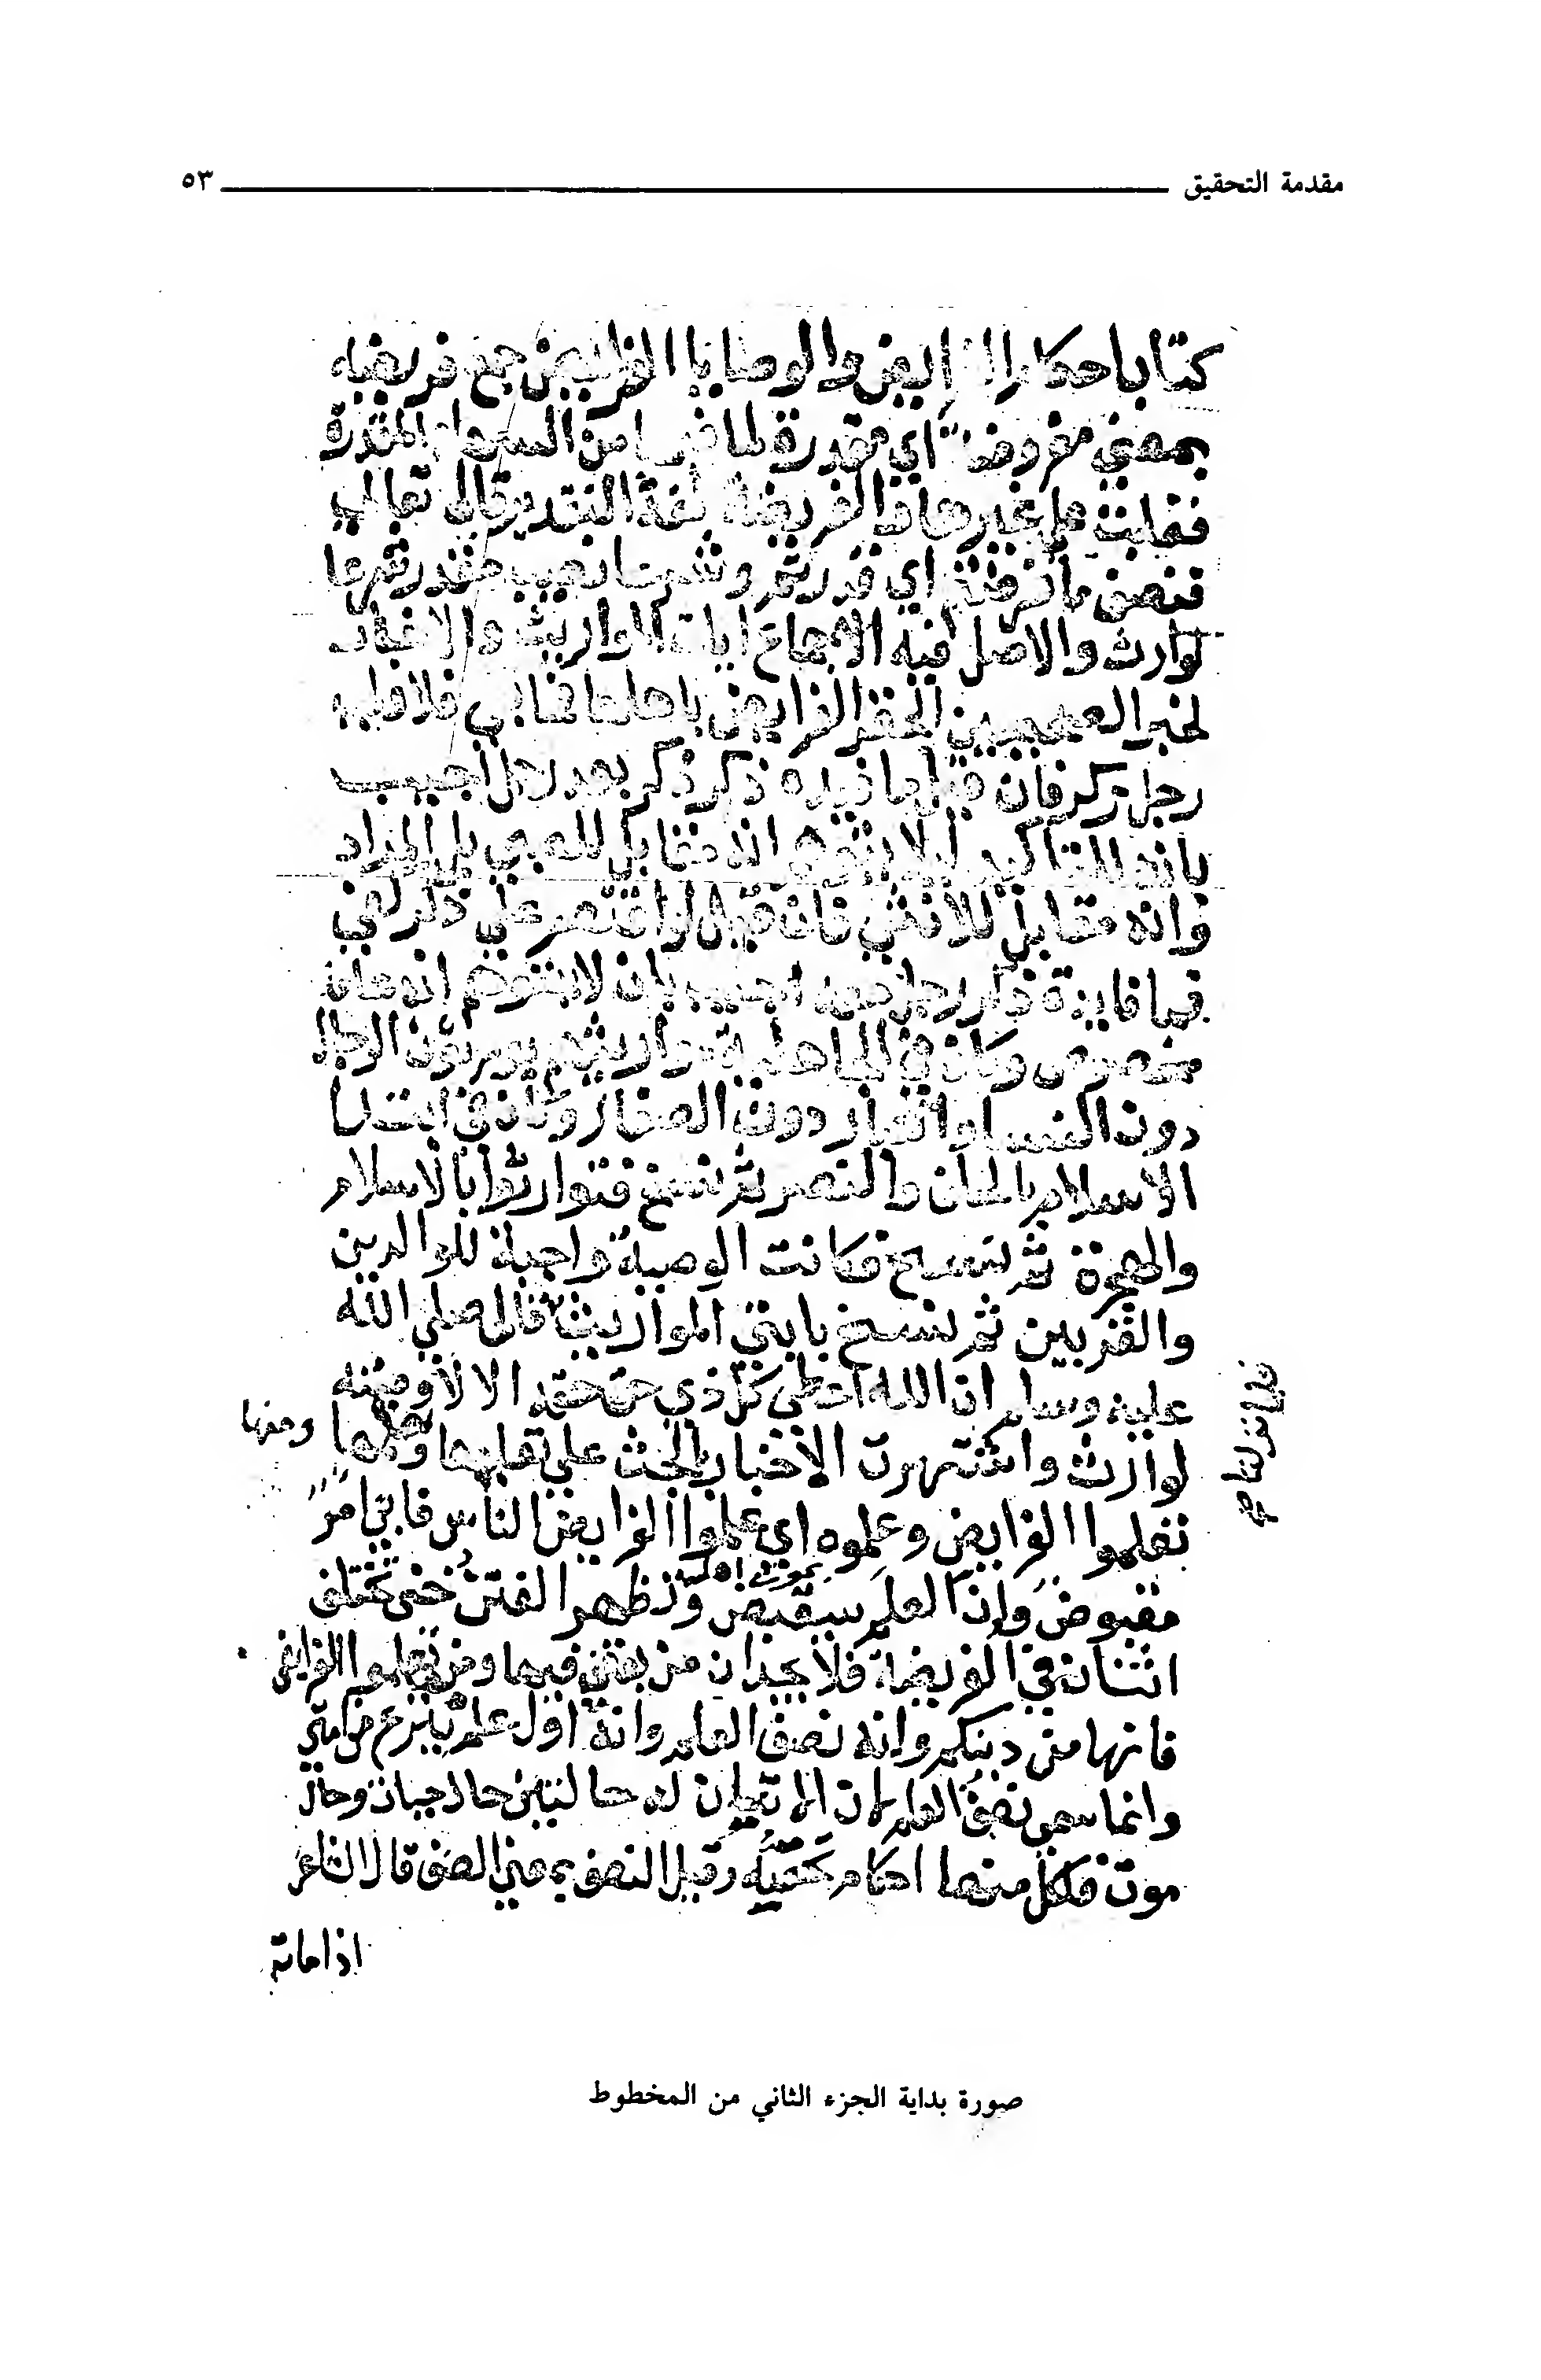 مقدمة التحقيق ٥٣
كتاب احكام الفرايض والوصايا الفرايض جمع فريضة
بمعني مفروضة اي مقدرة لما فيها من السهام المقدرة
فغلبت علي غيرها والفريضة لغة التقدير قال تعالي
فنصف ما فرضتم اي قدرتم وشرعا نصيب مقدر شرعا
لوارث والاصل فيه الاجماع ايات المواريث والاخبار
لخبر الصحيحين الحقوا الفرايض باهلها فما بقي فلاولي
رجل ذكر فان قيل ما فايدة ذكر ذكر بعد رجل اجيب
بانه للتاكيد ليلا يتوهم انه مقابل للصبي بل المراد
وانه مقابل للانثي فان قيل لو اقتصر علي ذكر لفي
فما فايدة ذكر رجل معه اجيب بان لا يتوهم انه عام
مخصوص وكان في الجاهلية مواريثهم يورثون الرجال
دون النسا والكبار دون الصغار وكان في ابتدا
الاسلام بالحلف والنصر ثم نسخ فتوارثوا بالاسلام
والهجرة ثم نسخ فكانت الوصية واجبة للوالدين
والاقربين ثم نسخ بايتي المواريث قال صلي الله
عليه وسلم ان الله اعطي كل ذي حق حقه الا لا وصية
لوارث واشتهرت الاخبار بالحث علي تعليمها وتعلمها ومنها
تعلموا الفرايض وعلموه اي علموا الفرايض الناس فاني امرؤ
مقبوض وان العلم سيقبض وتظهر الفتن حتي يختلف
اثنان في الفريضة فلا يجدان من يقضي فيها ومن تعلموا الفرايض
فانها من دينكم وانه نصف العلم وانه اول علم ينزع من امتي
وانما سمي نصف العلم لان الانسان له حالتين حال حياة وحال
موت فلكل منهما احكام تخصه وقيل النصف بمعني الصنف قال الشاعر
اذا مات
صورة بداية الجزء الثاني من المخطوط